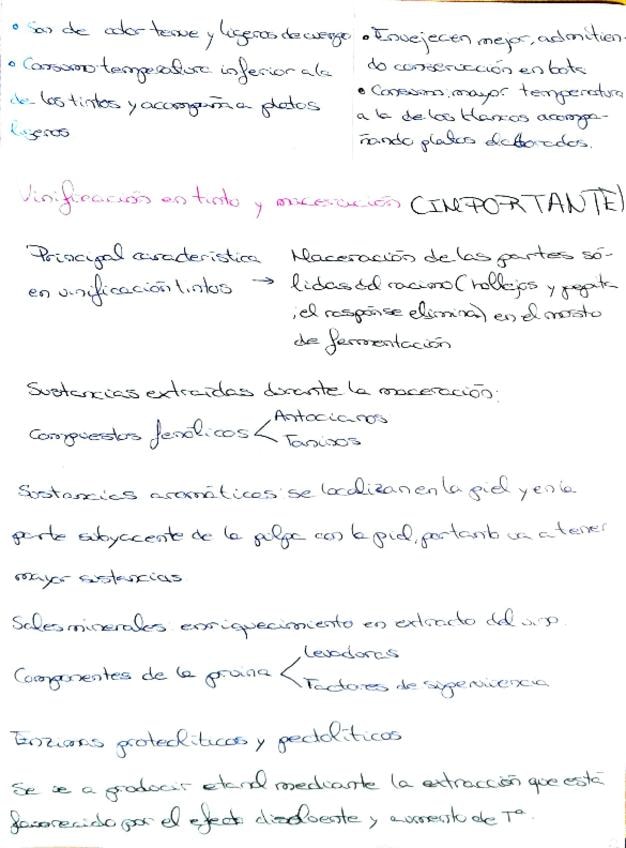 • Son de color tenue y ligeros de cuerpo
• Consumo temperatura inferior a la
de los tintos y acompaña a platos
ligeros
• Envejecen mejor, admitien-
do conservación en bota
• Consumo, mayor temperatura
a la de los blancos acompa-
ñando platos elaborados.
Vinificación en tinto y maceración (IMPORTANTE)
Principal característica
en vinificación tintos →
Maceración de las partes só-
lidas del racimo (hollejos y pepita
; el raspón se elimina) en el mosto
de fermentación
Sustancias extraídas durante la maceración:
Compuestos fenólicos < Antocianos
Taninos
Sustancias aromáticas: se localizan en la piel y en la
parte subyacente de la pulpa con la piel, por tanto va a tener
mayor sustancias
Sales minerales: enriquecimiento en extracto del vino.
Componentes de la pruina < Levaduras
Factores de supervivencia
Enzimas proteolíticas y pectolíticas
Se va a producir etanol mediante la extracción que está
favorecido por el efecto disolvente y aumento de Tª.